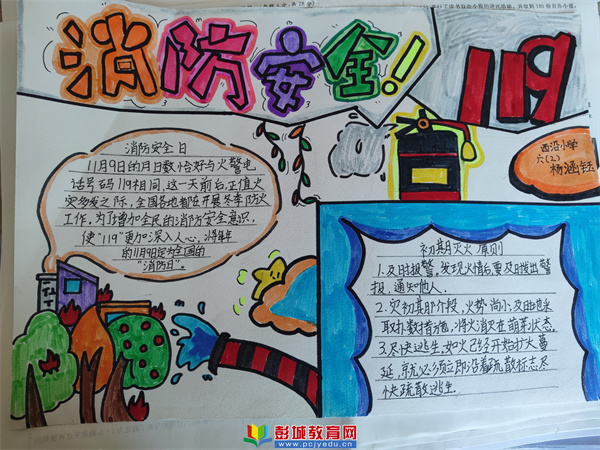 消防安全!
119
西沿小学
六(2)
杨涵钰
消防安全日
11月9日的月日数恰好与火警电
话号码119相同,这一天前后,正值火
灾多发之际,全国各地都在开展冬季防火
工作,为了增加全民的消防安全意识,
使“119”更加深入人心,将每年
的11月9日定为全国的
“消防日”。
初期灭火原则
1.及时报警,发现火情后要及时发出警
报,通知他人。
2.灾初其阶段,火势尚小,及时地采
取扑救措施,将火消灭在萌芽状态。
3.尽快逃生,如火已经开始扩大蔓
延,就必须立即沿着疏散标志尽
快疏散逃生。
彭城教育网
www.pcjyedu.cn